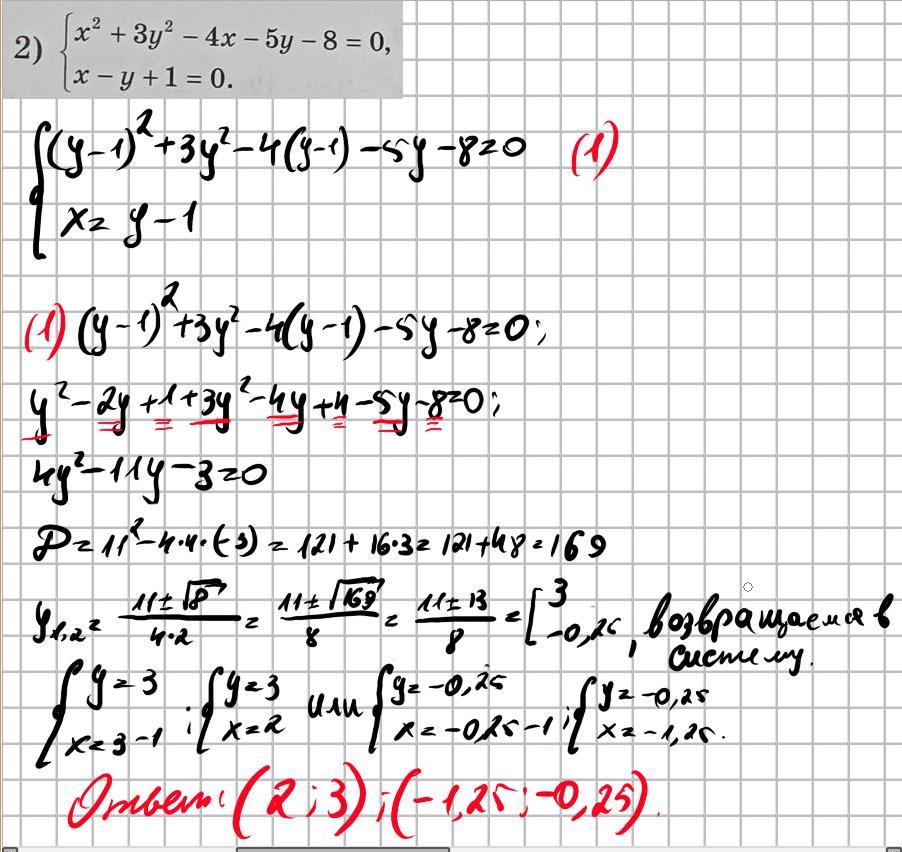 2) { x² + 3y² − 4x − 5y − 8 = 0,
x − y + 1 = 0.
{ (y−1)² + 3y² − 4(y−1) − 5y − 8 = 0 (1)
x = y − 1
(1) (y−1)² + 3y² − 4(y−1) − 5y − 8 = 0;
y² − 2y + 1 + 3y² − 4y + 4 − 5y − 8 = 0;
4y² − 11y − 3 = 0
D = 11² − 4·4·(−3) = 121 + 16·3 = 121 + 48 = 169
y₁,₂ = (11 ± √D)/(4·2) = (11 ± √169)/8 = (11 ± 13)/8 = [ 3
−0,25 , возвращаемся в
систему.
{ y = 3 ; { y = 3 или { y = −0,25 ; { y = −0,25
x = 3 − 1 x = 2 x = −0,25 − 1 x = −1,25.
Ответ: (2; 3); (−1,25; −0,25).